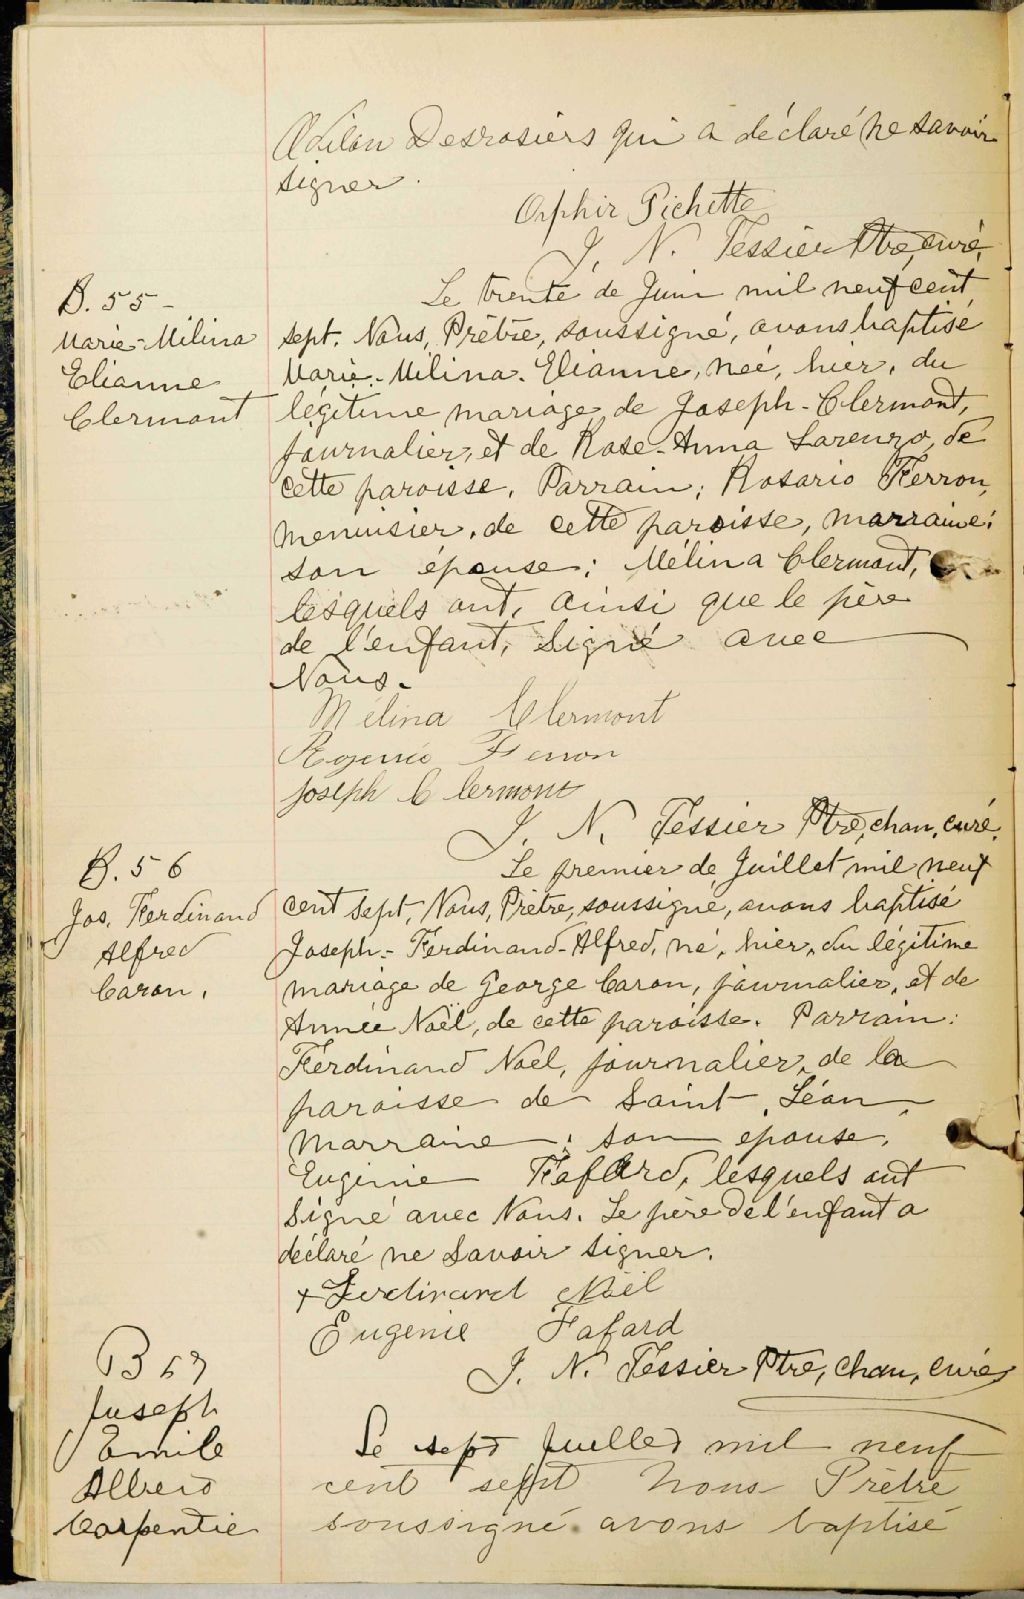 Odilon Desrosiers qui a déclaré ne savoir
signer.
Orphir Pichette
J. N. Tessier Ptre, curé.
B. 55 -
Marie-Milina
Elianne
Clermont
Le trente de Juin mil neuf cent
sept. Nous, Prêtre, soussigné, avons baptisé
Marie-Milina-Elianne, née, hier, du
légitime mariage de Joseph-Clermont,
journalier, et de Rose-Anna Larenzo, de
cette paroisse. Parrain: Rosario Ferron,
menuisier, de cette paroisse, marraine:
son épouse: Mélina Clermont,
lesquels ont, ainsi que le père
de l'enfant, signé avec
Nous.
Mélina Clermont
Ferron
Joseph Clermont
J. N. Tessier Ptre, chan, curé.
B. 56
Jos. Ferdinand
Alfred
Caron.
Le premier de Juillet mil neuf
cent sept, Nous, Prêtre, soussigné, avons baptisé
Joseph-Ferdinand-Alfred, né, hier, du légitime
mariage de George Caron, journalier, et de
Année Noël, de cette paroisse. Parrain:
Ferdinand Noël, journalier, de la
paroisse de Saint Léon,
Marraine: son epouse,
Eugenie Fafard, lesquels ont
signé avec Nous. Le père de l'enfant a
déclaré ne savoir signer.
+ Ferdinand Noël
Eugenie Fafard
J. N. Tessier Ptre, chan, curé
B 57
Joseph
Emile
Albert
Carpentie
Le sept Juillet mil neuf
cent sept Nous Prêtre
soussigné avons baptisé